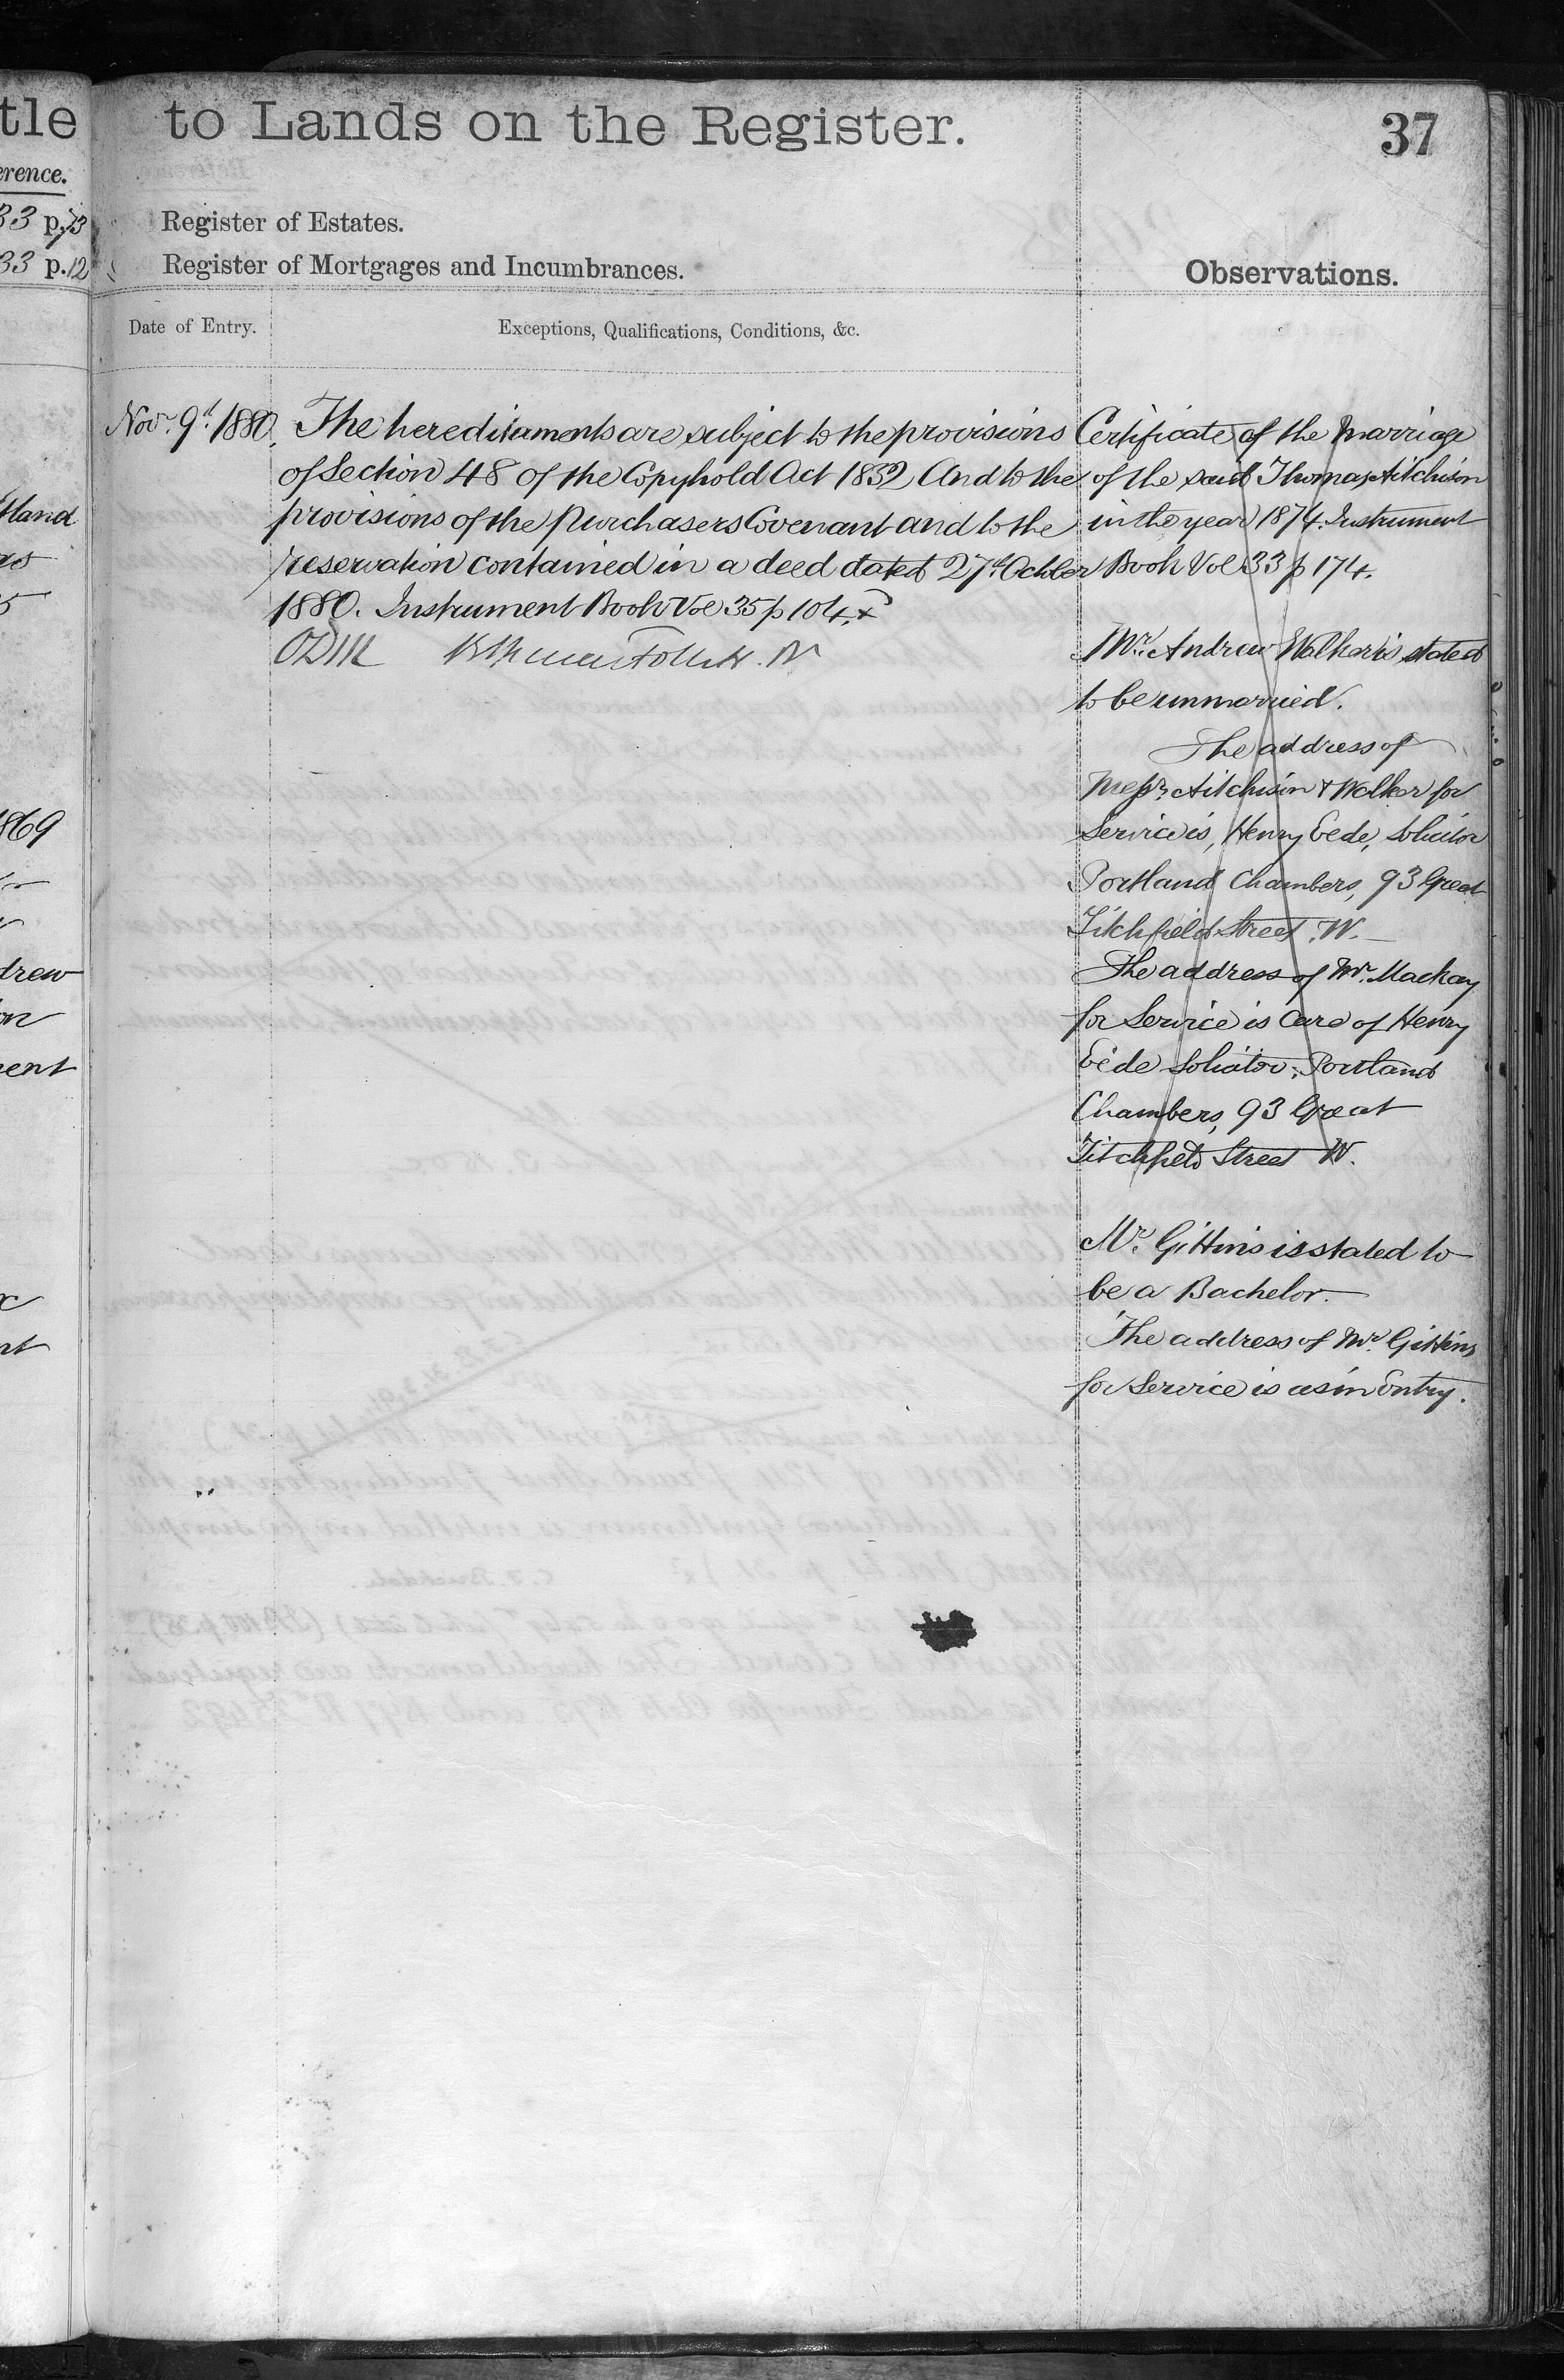 tle
erence.
33 p.73
33 p.12
tland
5
1869
drew
on
ment
nt
to Lands on the Register.
37
Register of Estates.
Register of Mortgages and Incumbrances.
Observations.
Date of Entry.
Exceptions, Qualifications, Conditions, &c.
Novr. 9th 1880.
The hereditaments are subject to the provisions
of Section 48 of the Copyhold Act 1852 And to the
provisions of the Purchasers Covenant and to the
reservation contained in a deed dated 27th October
1880. Instrument Book Vol 35 p 104.
Certificate of the Marriage
of the said Thomas Aitchison
in the year 1874. Instrument
Book Vol 33 p 174.
Mr. Andrew Walker is stated
to be unmarried.
The address of
Messrs. Aitchison & Walker for
Service is, Henry Eede, Solicitor
Portland Chambers, 93 Great
Titchfield Street. W.
The address of Mr. Mackay
for Service is Care of Henry
Eede Solicitor, Portland
Chambers, 93 Great
Titchfield Street W.
Mr. Gittins is stated to
be a Bachelor.
The address of Mr. Gittins
for Service is as in Entry.